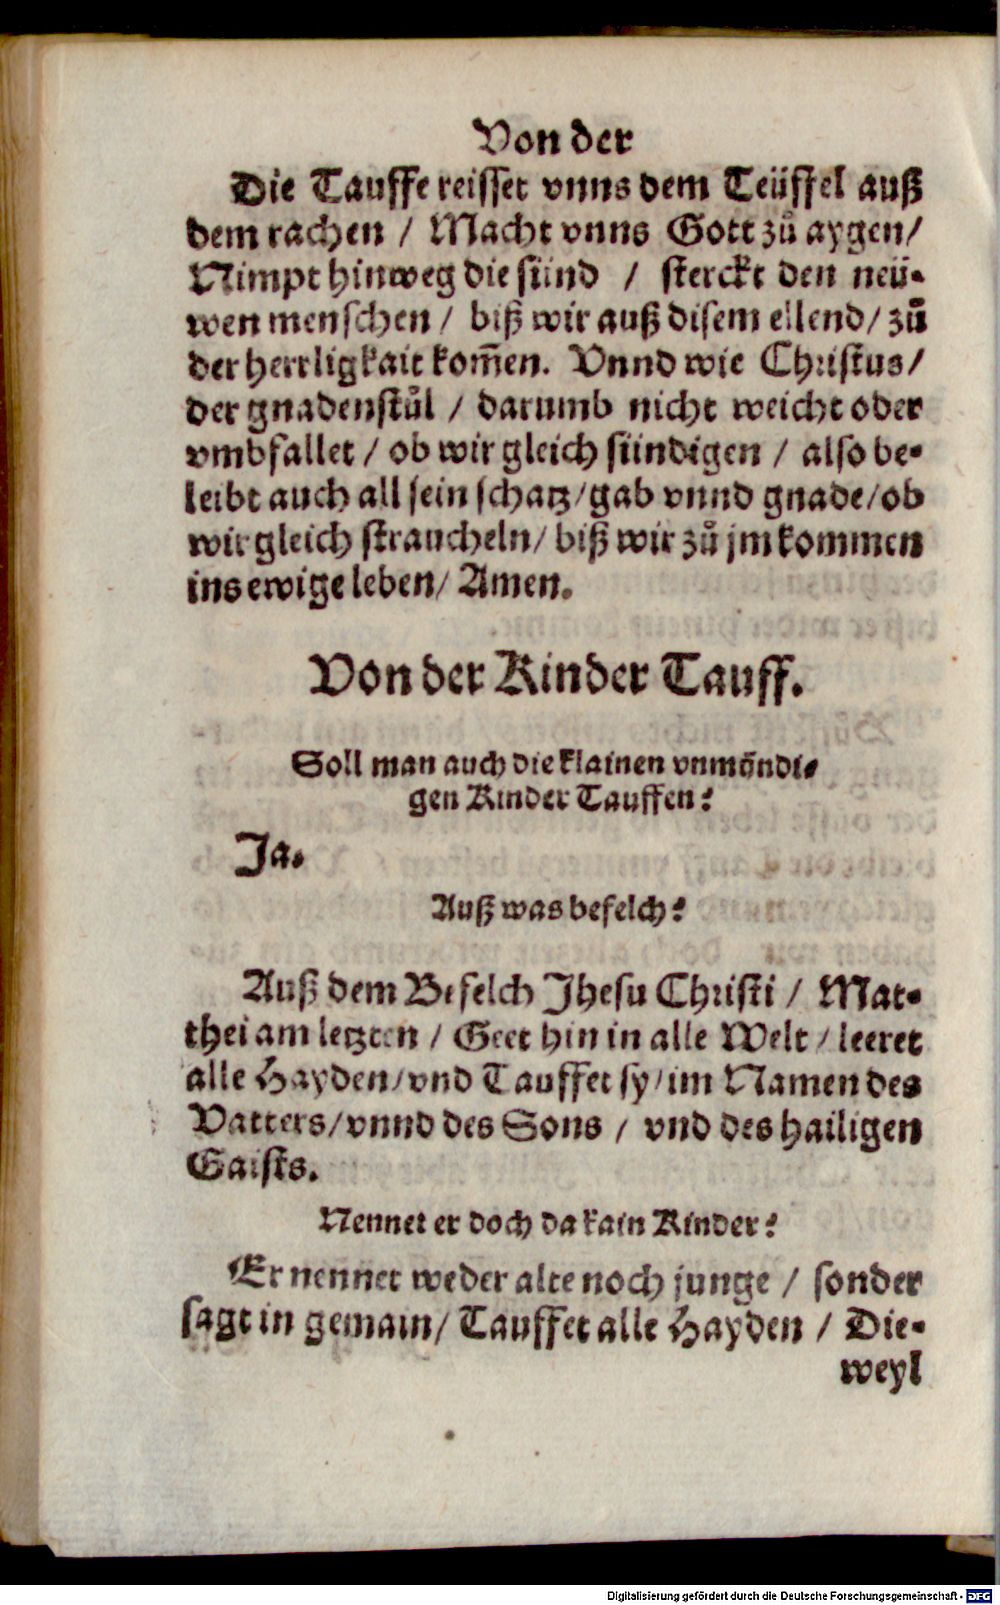 Von der
Die Tauffe reisset vnns dem Teüffel auß
dem rachen / Macht vnns Gott zů aygen/
Nimpt hinweg die sünd / sterckt den neü-
wen menschen / biß wir auß disem ellend/ zů
der herrligkait kom̃en. Vnnd wie Christus/
der gnadenstůl / darumb nicht weicht oder
vmbfallet / ob wir gleich sündigen / also be-
leibt auch all sein schatz/gab vnnd gnade/ob
wir gleich straucheln/ biß wir zů jm kommen
ins ewige leben/ Amen.
Von der Kinder Tauff.
Soll man auch die klainen vnmündi-
gen Kinder Tauffen?
Ja.
Auß was befelch?
Auß dem Befelch Jhesu Christi / Mat-
thei am letzten / Geet hin in alle Welt / leeret
alle Hayden/vnd Tauffet sy/im Namen des
Vatters/vnnd des Sons / vnd des hailigen
Gaists.
Nennet er doch da kain Kinder?
Er nennet weder alte noch junge / sonder
sagt in gemain/ Tauffet alle Hayden / Die-
weyl
Digitalisierung gefördert durch die Deutsche Forschungsgemeinschaft - DFG